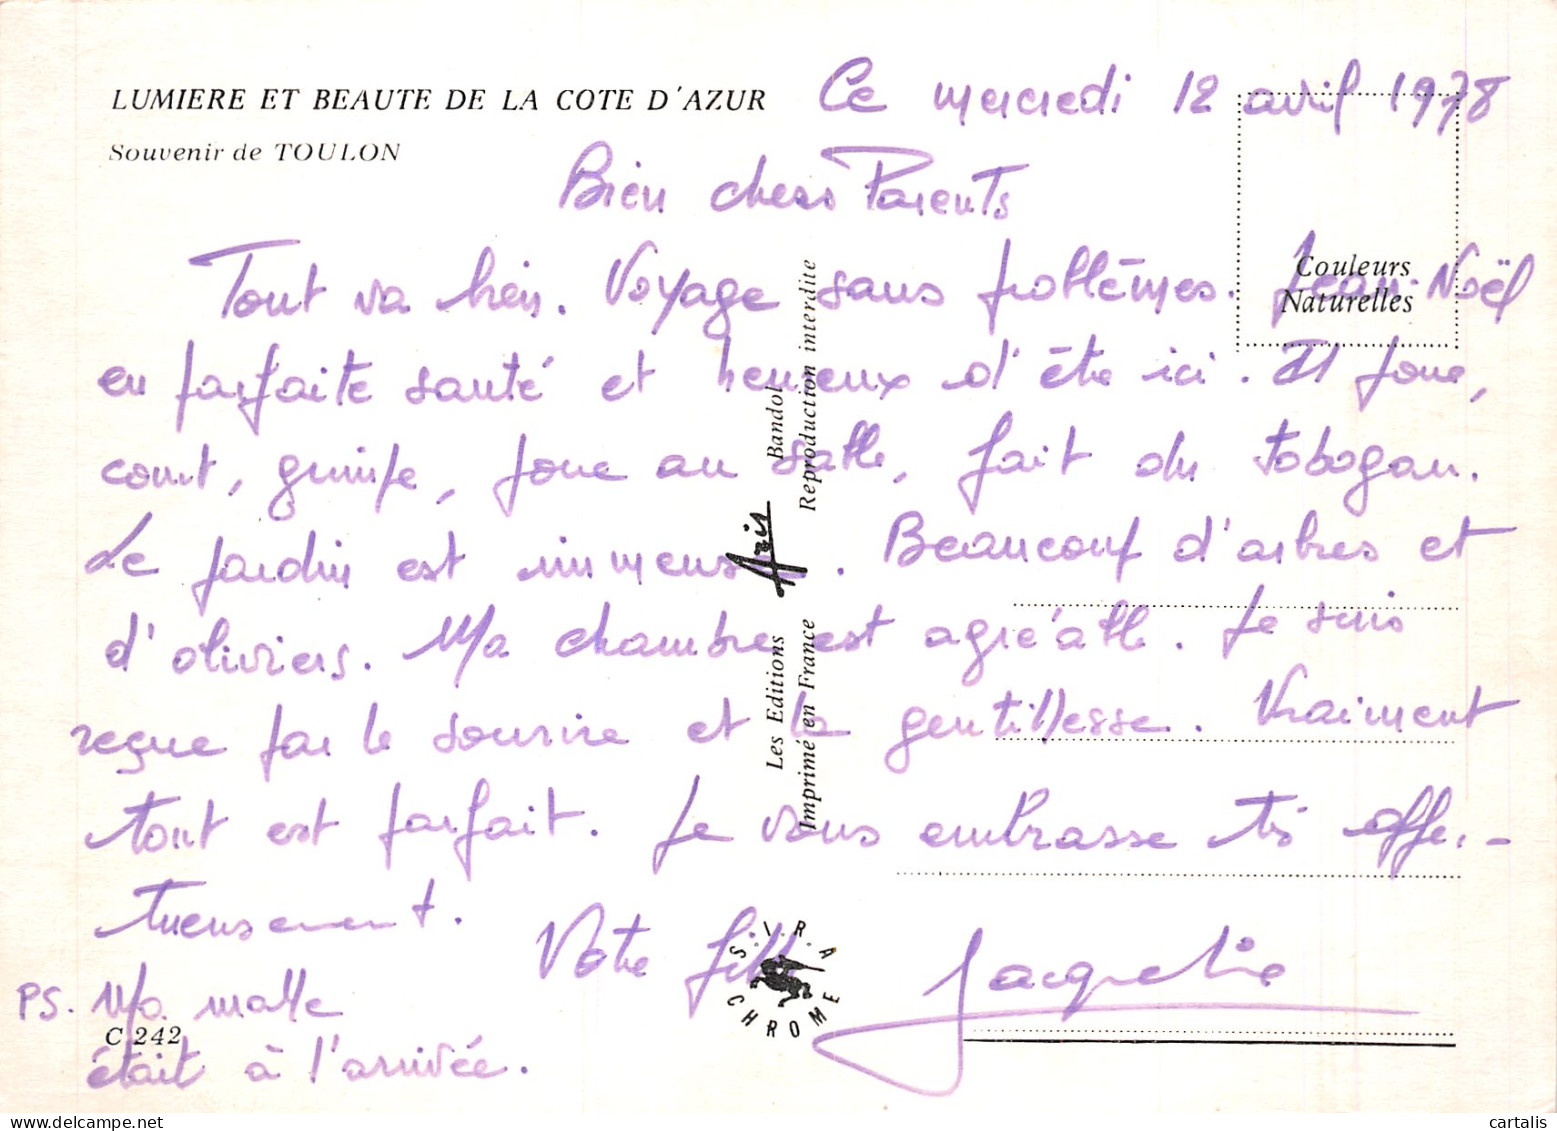 LUMIERE ET BEAUTE DE LA COTE D'AZUR
Souvenir de TOULON
Ce mercredi 12 avril 1978
Bien chers Parents
Tout va bien. Voyage sans problèmes. Jean-Noël
en parfaite santé et heureux d'être ici. Il joue,
court, grimpe, joue au sable, fait du tobogan.
Le jardin est immense. Beaucoup d'arbres et
d'oliviers. Ma chambre est agréable. Je suis
reçue par le sourire et la gentillesse. Vraiment
tout est parfait. Je vous embrasse très affec-
tueusement.
Votre fille Jacqueline
PS. Ma malle
était à l'arrivée.
C 242
Couleurs
Naturelles
Les Editions Aris Bandol
Imprimé en France Reproduction interdite
S.I.R.A
CHROME
cartalis